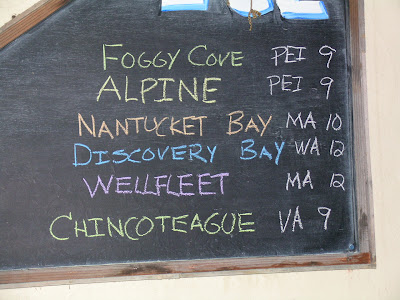 FOGGY COVE PEI 9
ALPINE PEI 9
NANTUCKET BAY MA 10
DISCOVERY BAY WA 12
WELLFLEET MA 12
CHINCOTEAGUE VA 9